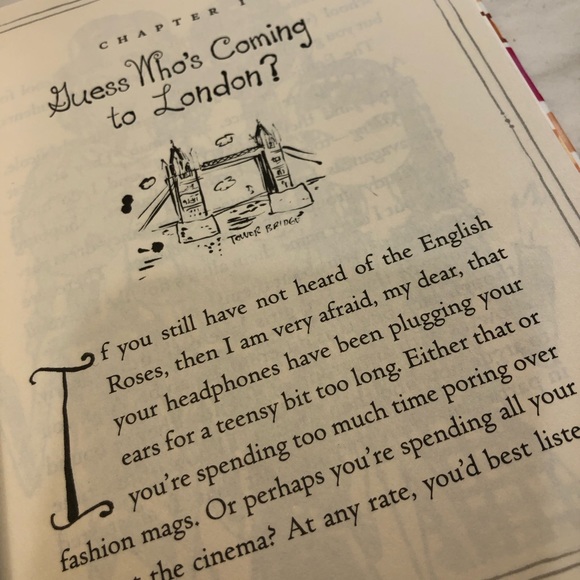 CHAPTER 1
Guess Who's Coming
to London?
TOWER BRIDGE
If you still have not heard of the English
Roses, then I am very afraid, my dear, that
your headphones have been plugging your
ears for a teensy bit too long. Either that or
you're spending too much time poring over
fashion mags. Or perhaps you're spending all your
the cinema? At any rate, you'd best liste